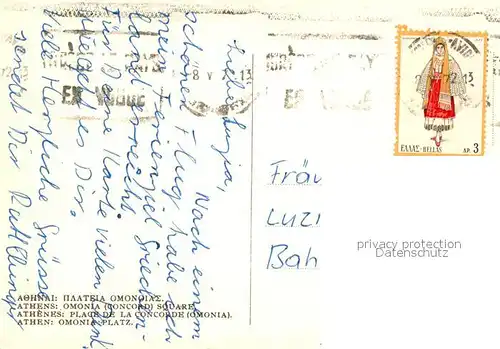 Liebe Luzia,
Nach einem
schönen Flug habe ich
mein Ferienziel Griechen-
land erreicht.
Für Deine Karte vielen Dank
es Dir.
Viele Herzliche Grüsse
sendet Dir Ruth
Fräu
LUZI
Bah
ΕΛΛΑΣ-HELLAS
ΔΡ. 3
8 V
13
privacy protection
Datenschutz
ΑΘΗΝΑΙ: ΠΛΑΤΕΙΑ ΟΜΟΝΟΙΑΣ.
ATHENS: OMONIA (CONCORD) SQUARE.
ATHÈNES: PLACE DE LA CONCORDE (OMONIA).
ATHEN: OMONIA-PLATZ.